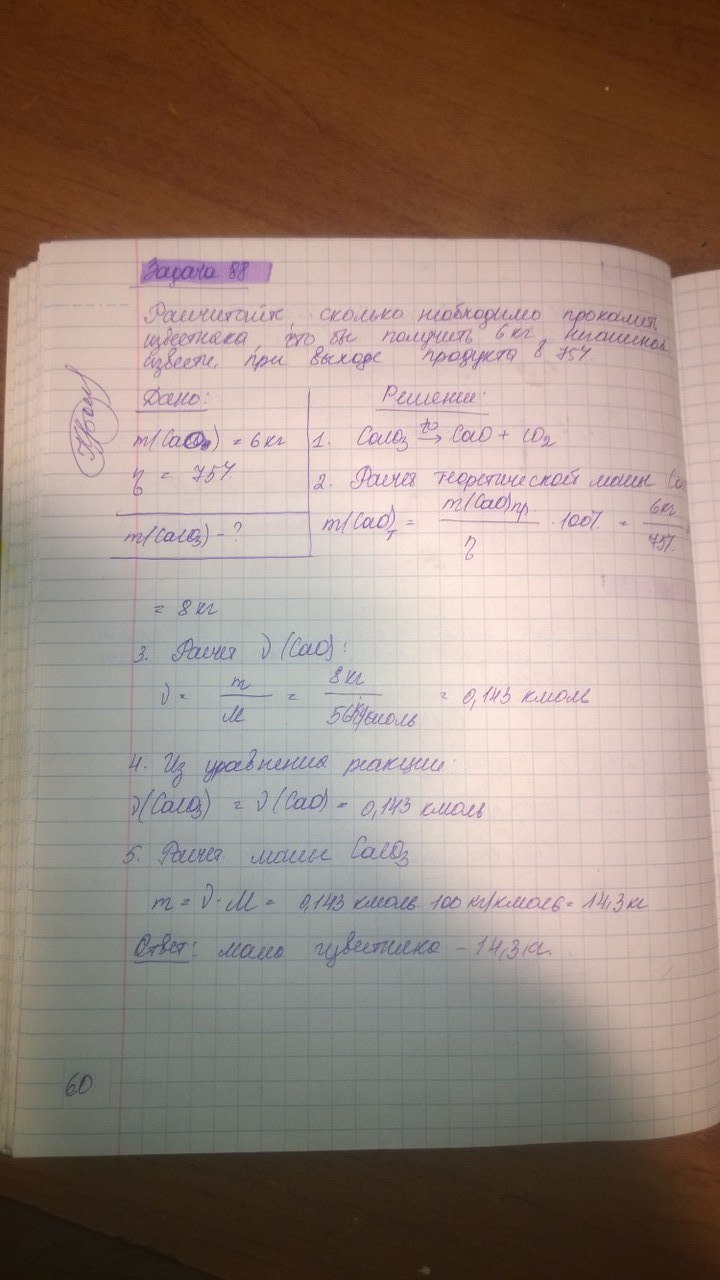 Задача 88
Расчитайте, сколько необходимо прокалить
известняка, что бы получить 6 кг негашеной
извести, при выходе продукта в 75%.
Дано:
m(CaO) = 6 кг
η = 75%
m(CaCO₃) - ?
Решение:
1. CaCO₃ →t° CaO + CO₂
2. Расчет теоретической массы Ca
m(CaO)т = m(CaO)пр / η · 100% = 6 кг / 75%
= 8 кг
3. Расчет ν(CaO):
ν = m / M = 8 кг / 56 кг/кмоль = 0,143 кмоль
4. Из уравнения реакции:
ν(CaCO₃) = ν(CaO) = 0,143 кмоль
5. Расчет массы CaCO₃
m = ν · M = 0,143 кмоль · 100 кг/кмоль = 14,3 кг
Ответ: масса известняка - 14,3 кг.
60